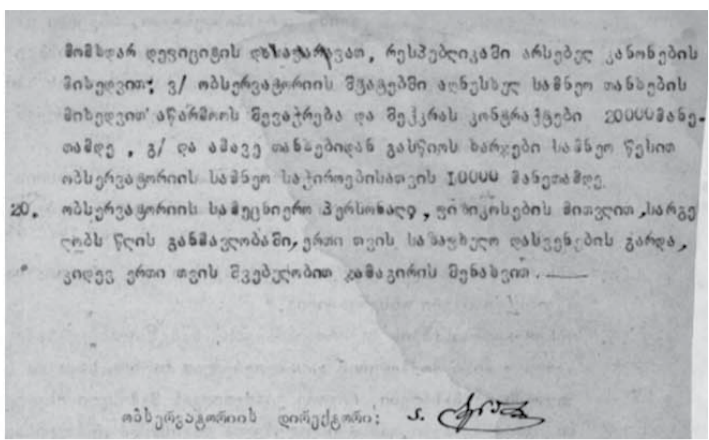 მომხდარ დეფიციტის დასაფარავათ, რესპუბლიკაში არსებულ კანონების
მიხედვით; ვ/ ობსერვატორიის შტატებში აღნუსხულ სამნეო თანხების
მიხედვით აწარმოოს შევაჭრება და შეჰკრას კონტრაქტები 20000მანე-
თამდე, გ/ და ამავე თანხებიდან გასწიოს ხარჯები სამნეო წესით
ობსერვატორიის სამნეო საჭიროებისათვის 10000 მანეთამდე
20. ობსერვატორიის სამეცნიერო პერსონალი, ფიზიკოსების მითვლით, სარგე
ლობს წლის განმავლობაში, ერთი თვის საზაფხულო დასვენების გარდა,
კიდევ ერთი თვის შვებულობით ჯამაგირის შენახვით.
ობსერვატორიის დირექტორი: